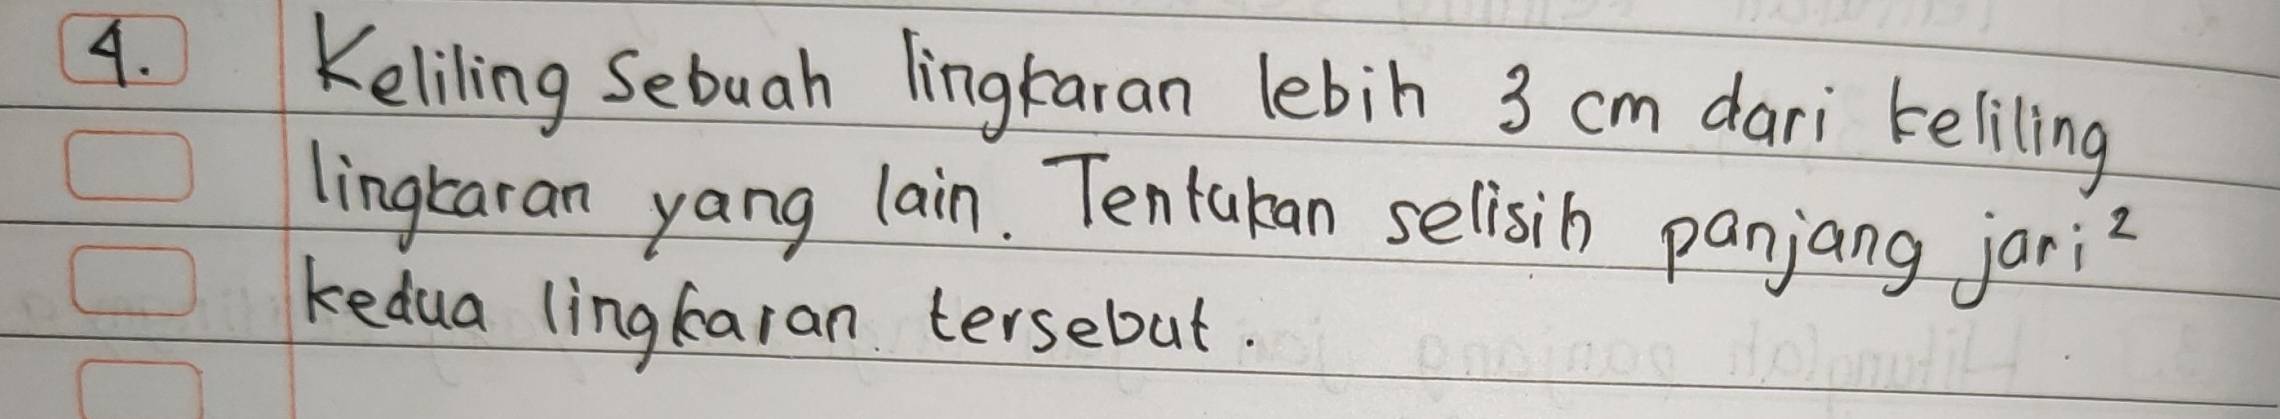 4. Keliling Sebuah lingkaran lebih 3 cm dari keliling
lingkaran yang lain. Tentukan selisih panjang jari²
kedua lingkaran tersebut.